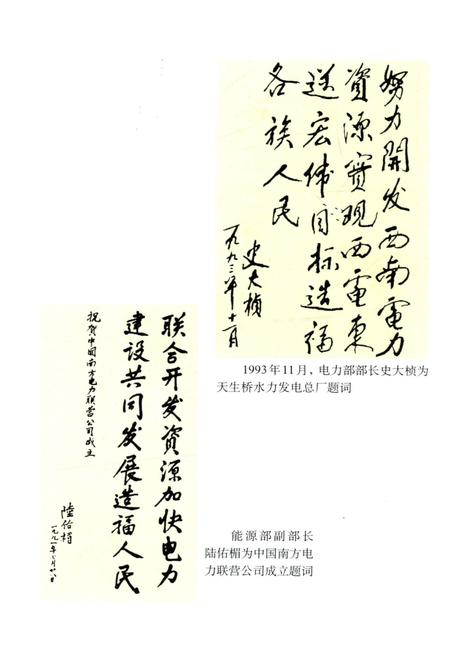 努力開发西南電力
資源實现西電東
送宏伟目标造福
各族人民
史大楨
一九九三年十一月
1993年11月，电力部部长史大桢为
天生桥水力发电总厂题词
联合开发資源加快电力
建设共同发展造福人民
祝贺中国南方电力联营公司成立
陸佑楣
能源部副部长
陆佑楣为中国南方电
力联营公司成立题词